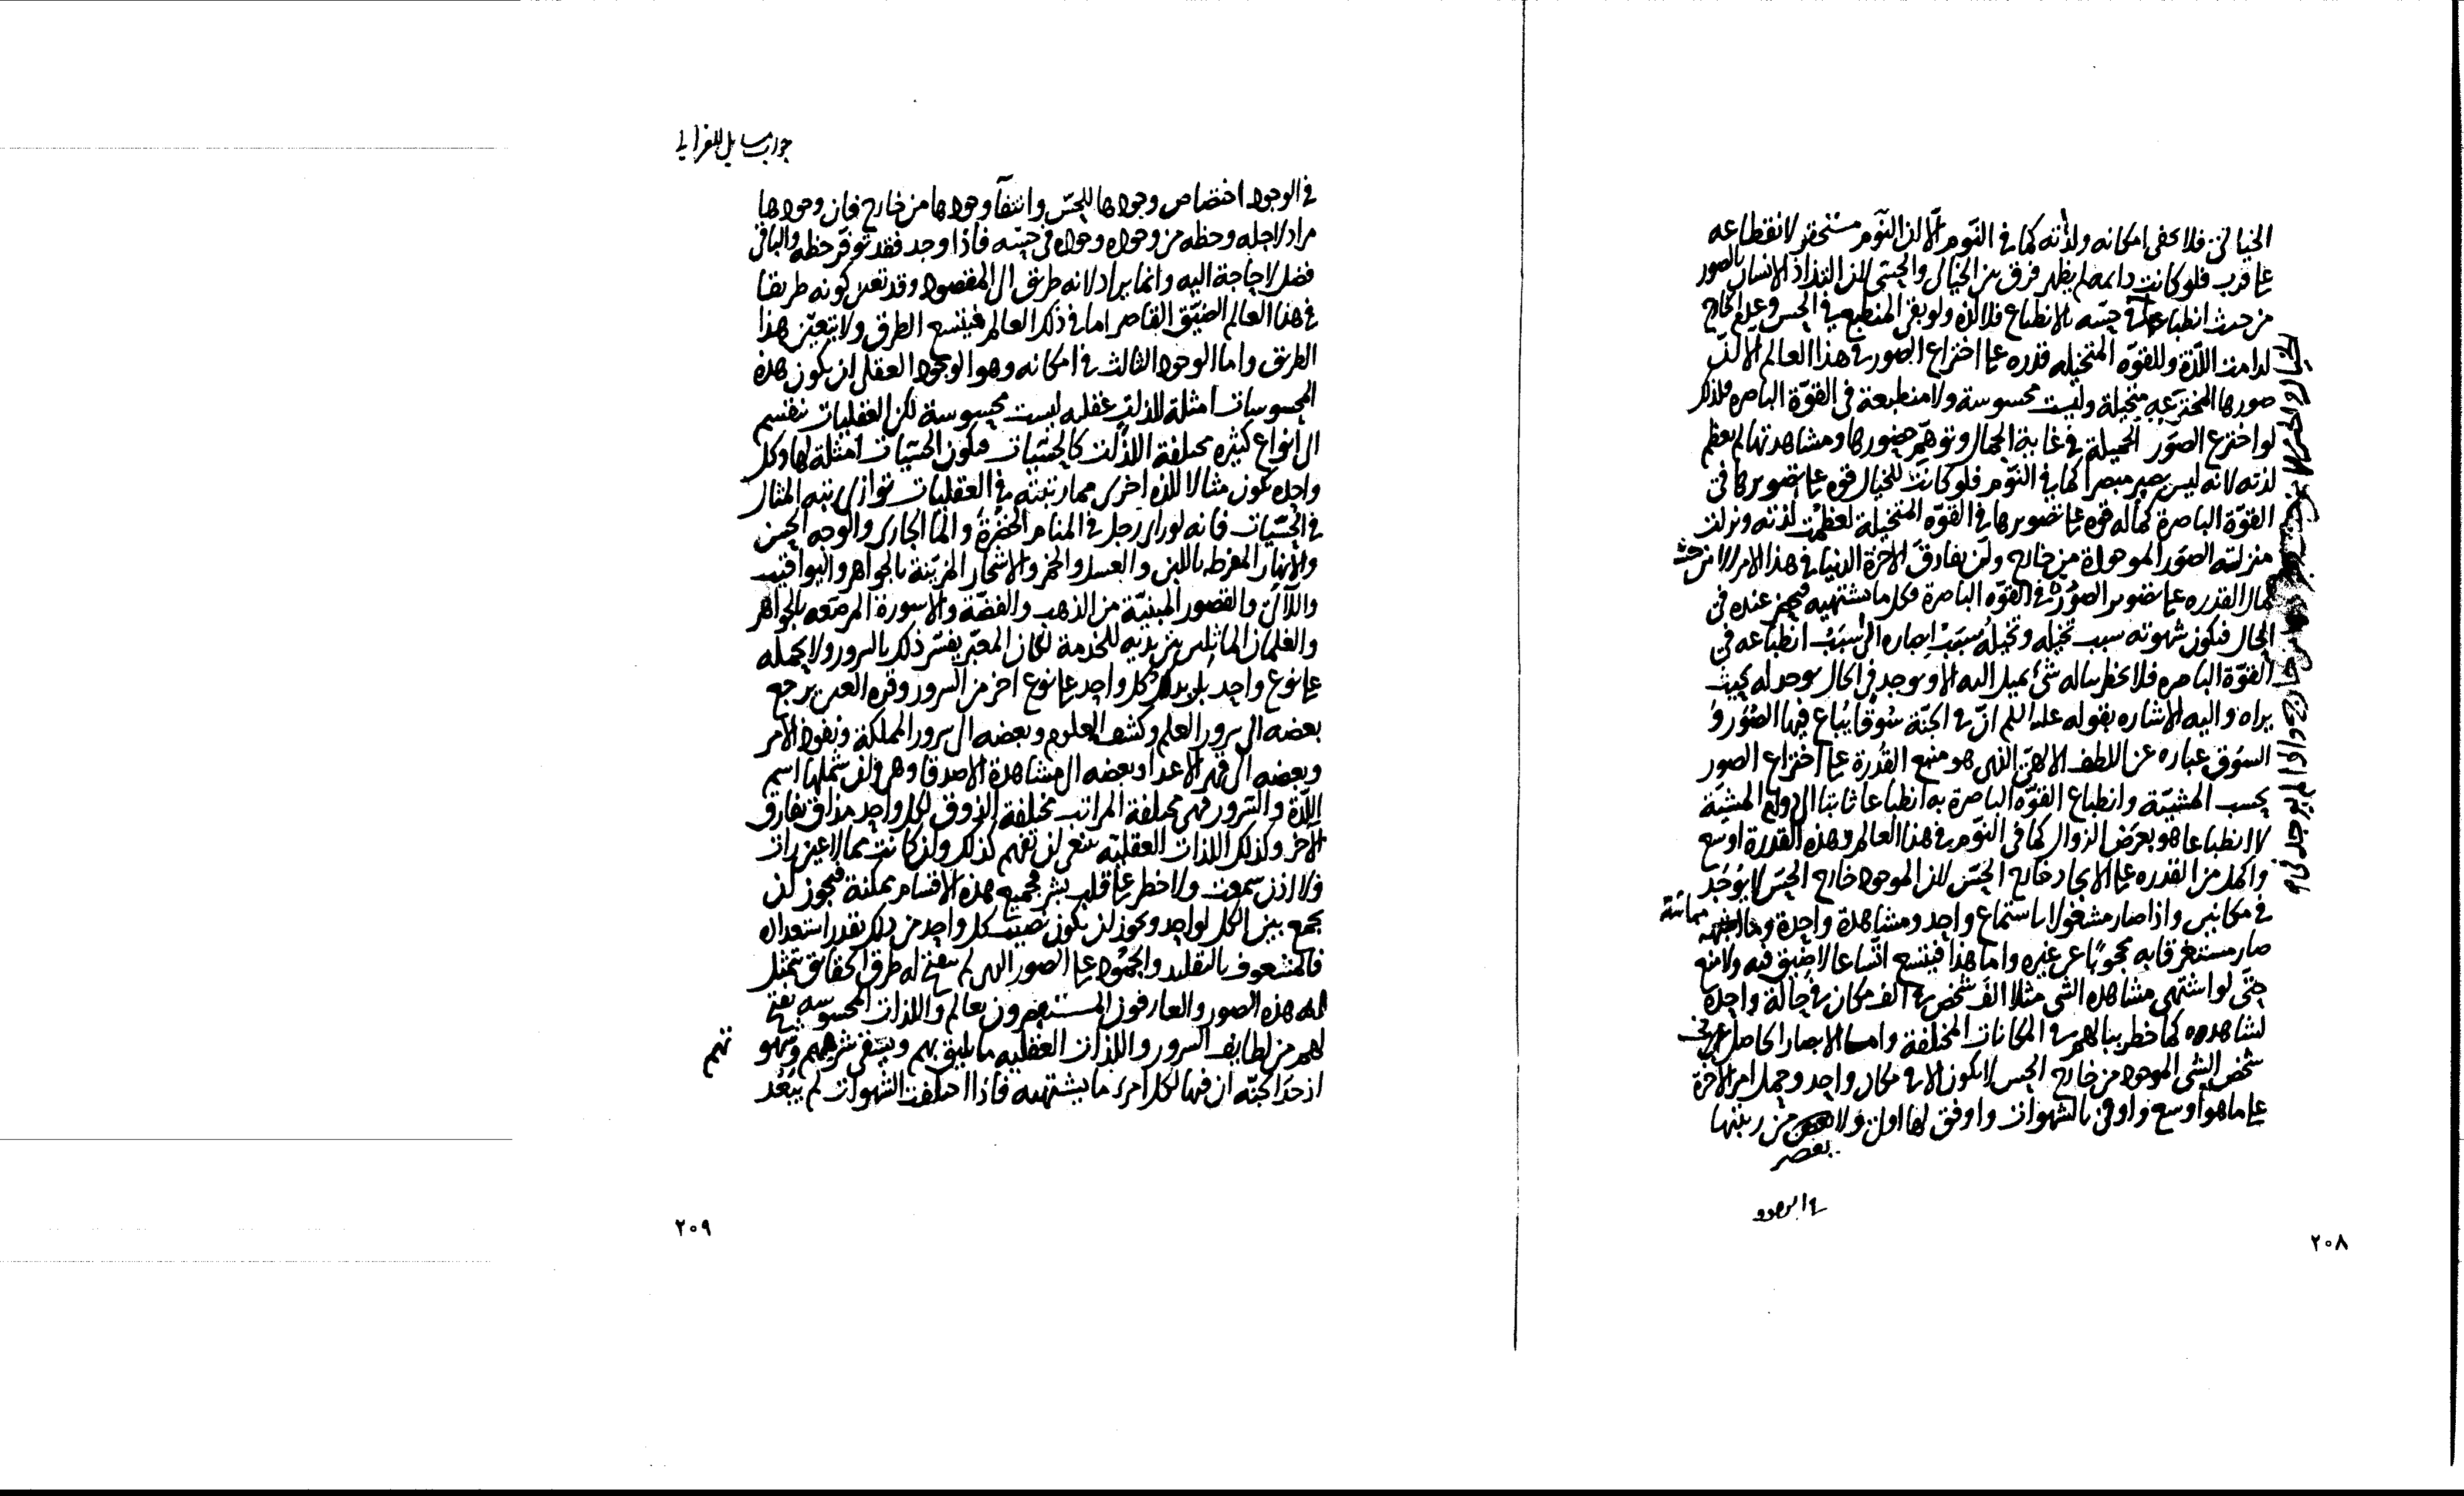 الخيالى فلا يخفى امكانه ولذته كما فى النوم الا ان النوم مستحقر لانقطاعه
على قرب فلو كانت دائمه لم يظهر فرق بين الخيالى والحسى لان التذاذ الانسان بالصور
من حيث انطباعها فى حسه بالانطباع فلا لذه ولو بقى المنطبع فى الحس وعدم الخارج
لدامت اللذة وللقوه المتخيله قدره على اختراع الصور فى هذا العالم الا ان
صورها المخترعه متخيلة وليست محسوسة ولا منطبعة فى القوة الباصره فلذلك
لو اخترع الصور الجميلة فى غاية الجمال وتوهم حضورها ومشاهدتها لم يعظم
لذته لانه ليس يصير مبصرا كما فى النوم فلو كانت للخيال قوه على تصويرها فى
القوة الباصرة كما له قوه على تصويرها فى القوه المتخيلة لعظمت لذته ونزلت
منزلته الصور الموجودة من خارج ولن يفارق الاخرة الدنيا فى هذا الامر الا من حيث
كمال القدره على تصوير الصورة فى القوه الباصرة وكل ما يشتهيه فيحضر عنده فى
الحال فيكون شهوته سبب تخيله وتخيله سبب ابصاره اى سبب انطباعه فى
القوة الباصره فلا يخطر بباله شئ يميل اليه الا ويوجد فى الحال يوجد له بحيث
يراه واليه الاشاره بقوله عليه السلم ان فى الجنة سوقا يباع فيها الصور و
السوق عباره عن اللطف الالهى الذى هو منبع القدرة على اختراع الصور
بحسب المشيئة وانطباع القوه الباصرة به انطباعا ثابتا الى دوام المشية
لا انطباعا هو بعرض الزوال كما فى النوم فى هذا العالم وهذه القدرة اوسع
واكمل من القدره على الايجاد خارج الحس لان الموجود خارج الحس لا يوجد
فى مكانين واذا صار مشغولا باستماع واحد ومشاهدة واحدة
مماسة
صار مستغرقا به محجوبا عن غيره واما هذا فيتسع اتساعا لا ضيق فيه ولا منع
حتى لو اشتهى مشاهده الشى مثلا الف شخص فى الف مكان فى حالة واحدة
لشاهدوه كما خطر ببالهم فى المكانات المختلفة واما الابصار الحاصل عن
شخص الشى الموجود من خارج الحس لا يكون الا فى مكان واحد وحمل امر الاخرة
على ما هو اوسع واوفى بالشهوات واوفق لها اولى ولا من رتبتها
فى الوجود
٢٠٨
جواب مسايل للغزالى
فى الوجود اختصاص وجودها للحس وانتفآ وجودها من خارج فان وجودها
مراد لاجله وحظه من وجوده وجوده فى حسه فاذا وجد فقد توفر حظه والباقى
فضل لا حاجة اليه وانما يراد لانه طريق الى المقصود وقد تعين كونه طريقا
فى هذا العالم الضيق القاصر اما فى ذلك العالم فيتسع الطرق ولا يتعين هذا
الطريق واما الوجود الثالث فى امكانه وهو الوجود العقلى ان يكون هذه
المحسوسات امثلة للذات عقليه ليست محسوسة لكن العقليات تنقسم
الى انواع كثيره مختلفة اللذات كالحسيات فيكون الحسيات امثلة لها وكل
واحده يكون مثالا للذه اخرى مما رتبته فى العقليات توازى رتبه المثال
فى الحسيات فانه لو راى رجل فى المنام الخضرة والمآ الجارى والوجه الحسن
والانهار المفرطه باللبن والعسل والخمر والاشجار المزينة بالجواهر واليواقيت
واللآلئ والقصور المبنية من الذهب والفضة والاسورة المرصعه بالجواهر
والغلمان الماثلين بين يديه للخدمة لكان المعبر يفسر ذلك بالسرور ولا يحمله
على نوع واحد بل يدل كل واحد على نوع اخر من السرور وقره العين يرجع
بعضه الى سرور العلم وكشف العلوم وبعضه الى سرور المملكة ونفوذ الامر
وبعضه الى قهر الاعدا وبعضه الى مشاهدة الاصدقا وهى وان شملها اسم
اللذة والسرور فهى مختلفة المراتب مختلفة الذوق لكل واحد مذاق يفارق
الاخر وكذلك اللذات العقلية ينبغى ان تفهم كذلك وان كانت مما لا عين رات
ولا اذن سمعت ولا خطر على قلب بشر فجميع هذه الاقسام ممكنة فيجوز ان
يجمع بين الكل لواحد ويجوز ان يكون نصيب كل واحد من ذلك بقدر استعداده
فالمشعوف بالتقليد والجمود على الصور التى لم ينفتح له طرق الحقائق تمثل
له هذه الصور والعارفون المستبصرون بعالم واللذات المحسوسه يفتح
لهم من لطايف السرور واللذات العقليه ما يليق بهم ويشفى شرههم وشهو
تهم
اذ حد الجنه ان فيها لكل امرء ما يشتهيه فاذا اختلفت الشهوات لم يبعد
٢٠٩